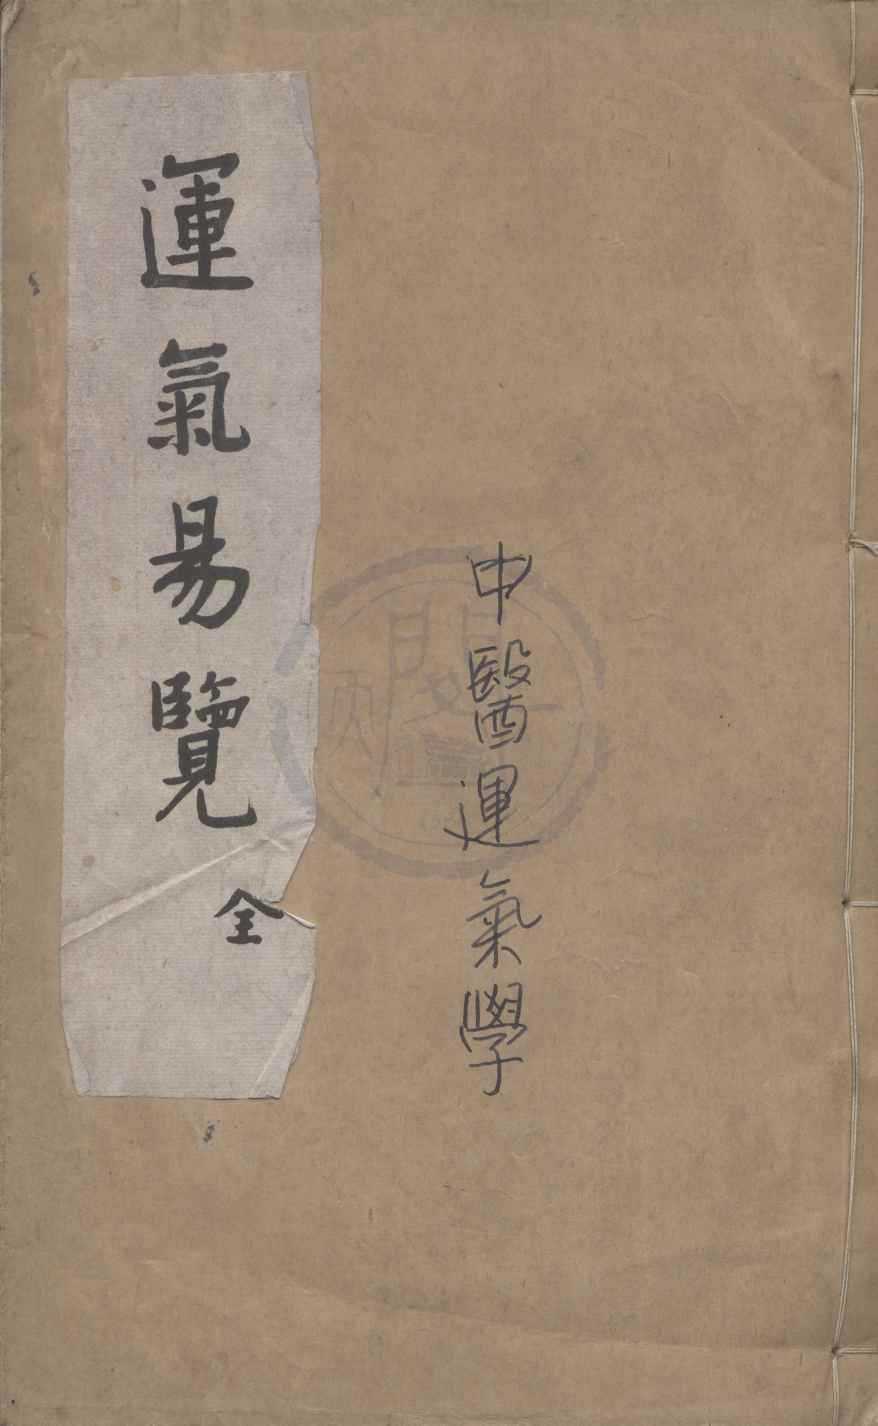 中醫運氣學
運氣易覽
全